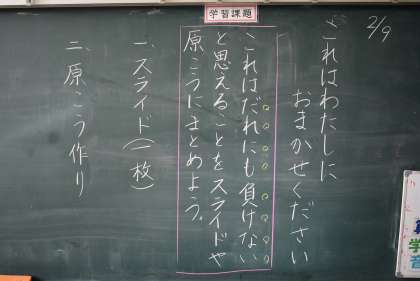 2/9
これはわたしに
おまかせください
学習課題
これはだれにも負けない
と思えることをスライドや
原こうにまとめよう。
一、スライド(一枚)
二、原こう作り
学
音